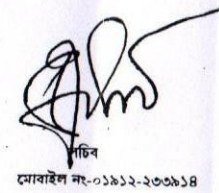 সচিব
মোবাইল নং-০১৯১২-২৩৩৯১৪